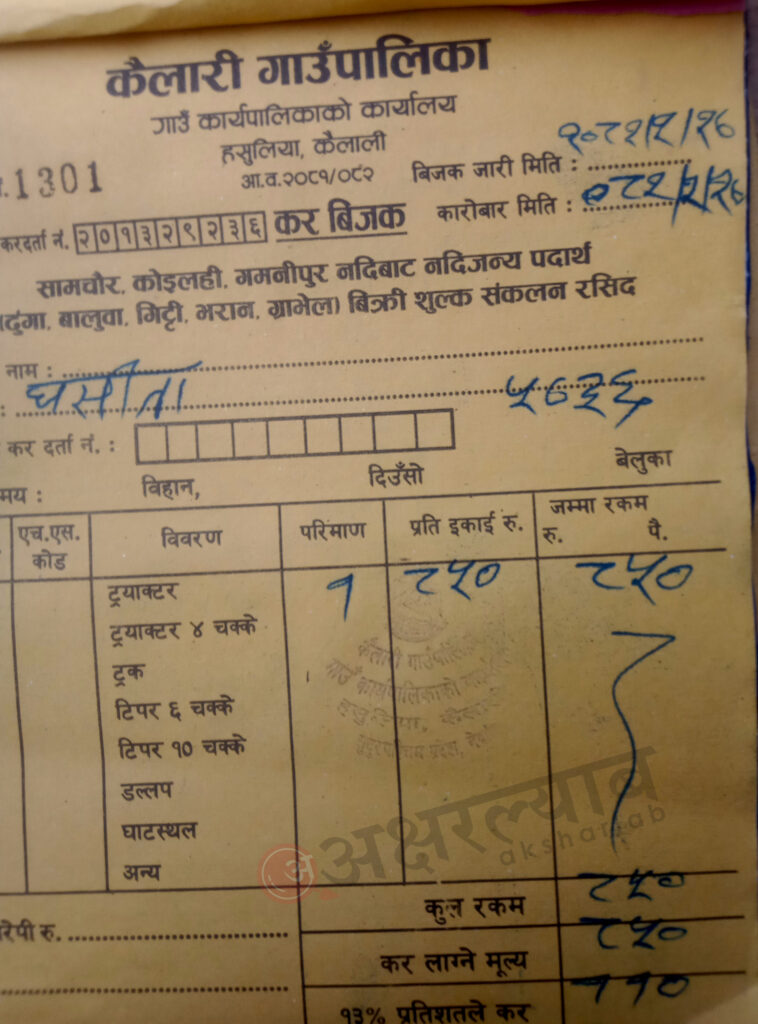 कैलारी गाउँपालिका
गाउँ कार्यपालिकाको कार्यालय
हसुलिया, कैलाली
1301
आ.व.२०८१/०८२
बिजक जारी मिति :
करदर्ता नं. २०१३२९२३६ कर बिजक
कारोबार मिति :
सामचौर, कोइलही, गमनीपुर नदिबाट नदिजन्य पदार्थ
ढुंगा, बालुवा, गिट्टी, भरान, ग्राभेल) बिक्री शुल्क संकलन रसिद
नाम :
घसीता ५०३६
कर दर्ता नं. :
विहान, दिउँसो बेलुका
एच.एस. कोड विवरण परिमाण प्रति इकाई रु. जम्मा रकम रु. पै.
ट्रयाक्टर १ ८५० ८५०
ट्रयाक्टर ४ चक्के
ट्रक
टिपर ६ चक्के
टिपर १० चक्के
डल्लप
घाटस्थल
अन्य
कुल रकम ८५०
रु.
कर लाग्ने मूल्य ८५०
१३% प्रतिशतले कर ११०
कैलारी गाउँपालिका
गाउँ कार्यपालिकाको
हसुलिया,
अक्षरल्याब
aksharlab